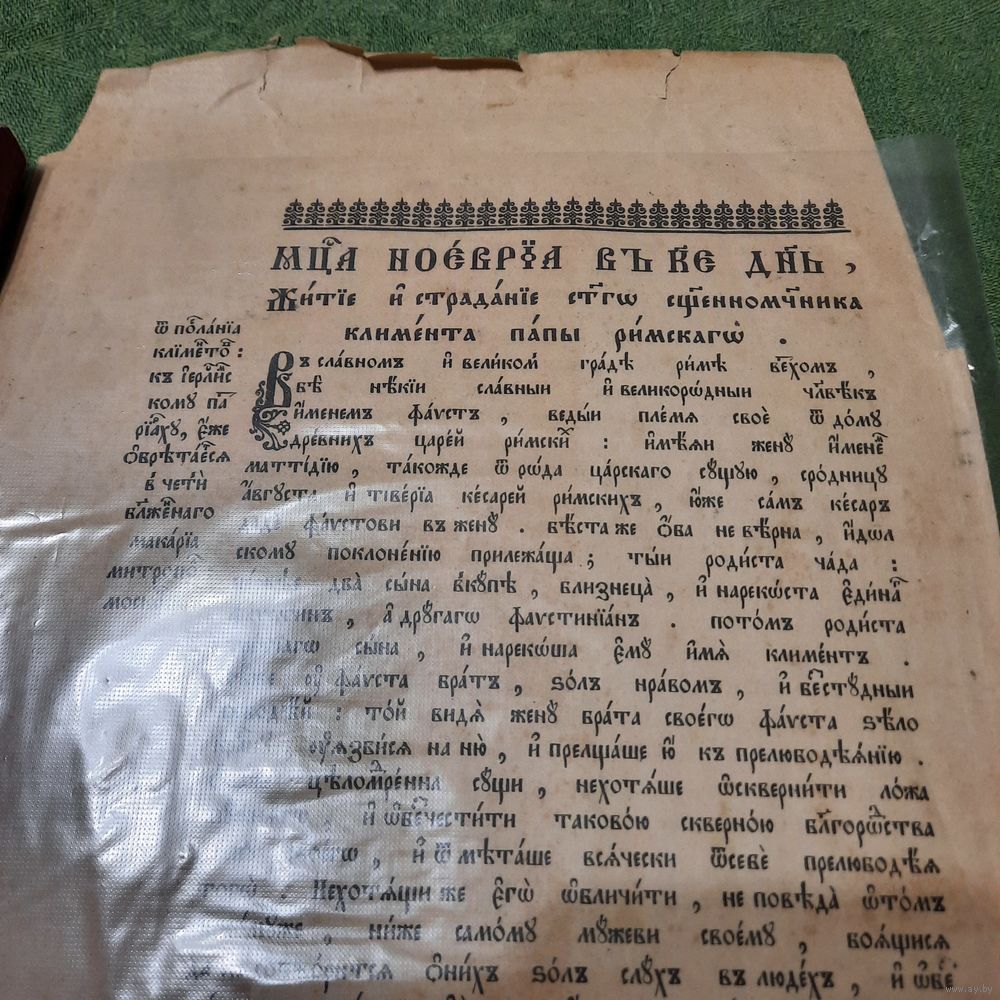 мц҃а ное́врїа въ к҃е дн҃ь ,
Жи́тїе и҆ страда́нїе ст҃гѡ сщ҃енномч҃ника
климе́нта па́пы ри́мскагѡ .
ѿ посла́нїа
клїме́нтов :
къ і҆ерⷭ҇лиⷨс
кому па
рїа́ху, е҆́же
ѡ҆брѣта́ется
в че́тьи
бл҃же́наго
мака́рїа
Въ сла́вномъ и҆ вели́ком гра́дѣ ри́мѣ ве́тхомъ ,
бѣ̀ нѣ́кїи сла́вныи и҆ великорѡ́дныи чл҃вѣкъ
и҆́менемъ фа́ѵстъ , веды́и пле́мѧ своѐ ѿ до́му
дре́внихъ царе́й ри́мскиⷯ : и҆мѣ́ѧи жену̀ и҆́менеⷨ
маттїді́ю , та́кожде ѿ ро́да ца́рскаго су́щую , сро́дницу
а҆́вгуста и҆ тіве́рїа ке́сарей ри́мскихъ , ю҆́же са́мъ ке́саръ
дадѐ фа́ѵстови въ жену̀ . бѣ́ста же ѻ҆́ба не вѣ́рна , и҆́дѡл
скому̀ поклоне́нїю прилежа́ща ; ты́и роди́ста ча́да :
два̀ сы́на вку́пѣ , близнеца̀ , и҆ нареко́ста є҆ди́наⷢ҇
а҆ друга́гѡ фаѵстинїа́н . пото́мъ роди́ста
сы́на , и҆ нареко́ша є҆му̀ и҆́мѧ климе́нтъ .
у҆ фа́ѵста бра́тъ , ѕо́лъ нра́вомъ , и҆ безсту́дныи
: то́й ви́дѧ жену̀ бра́та своегѡ̀ фа́ѵста ѕѣло̀
оуѧзви́сѧ на ню̀ , и҆ прелща́ше ю҆̀ къ прелюбодѣѧ́нїю .
цѣлому́дренна су́щи , нехотѧ́ше ѡ҆скверни́ти ло́жа
и҆ ѡ҆безче́стити таково́ю скверно́ю бл҃горо́дства
своегѡ̀ , и҆ ѿмѣта́ше всѧ́чески ѿсебѐ прелюбодѣ́ѧ
. Нехотѧ́щи же є҆го̀ ѡ҆бличи́ти , не повѣ́да ѡ҆то́мъ
, ни́же самому̀ му́жеви своему̀ , боѧ́щисѧ
ѻ҆ни́хъ ѕо́лъ слу́хъ въ лю́дехъ , и҆ ѡ҆бе
www.ay.by